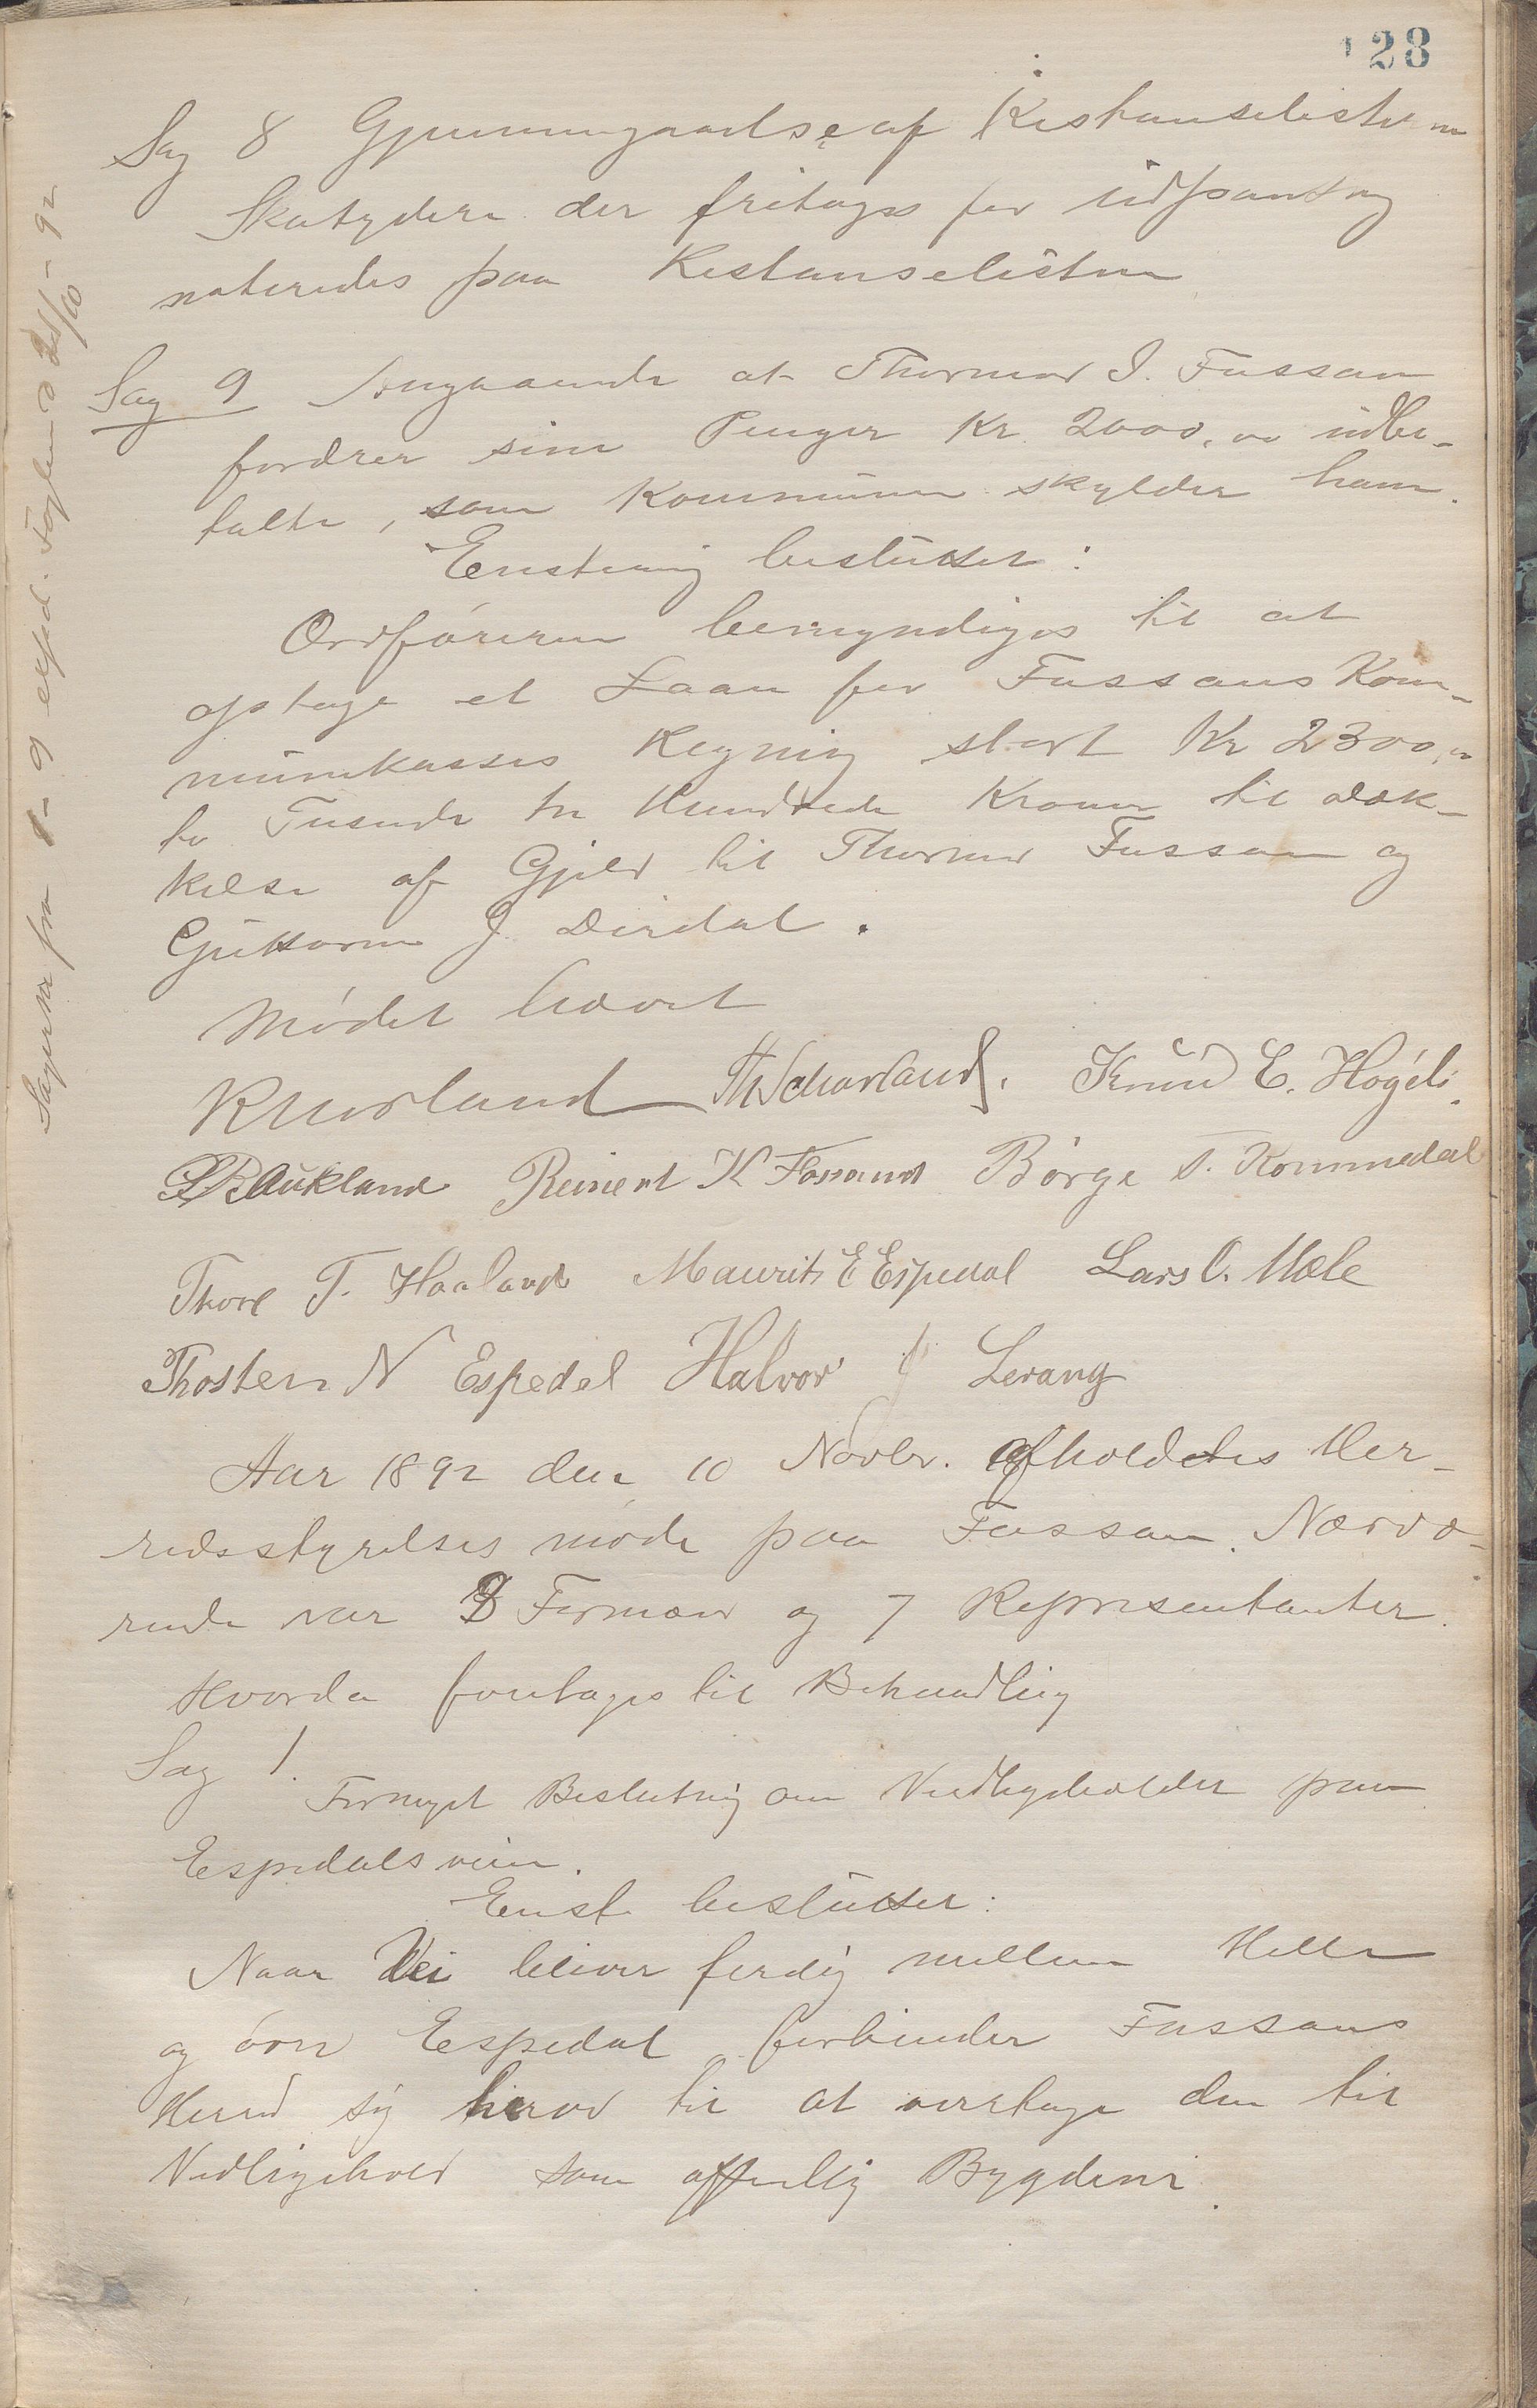 128
Sag 8 Gjennemgaaelse af Restanselisten
Skatydere der fritages for udpantning
noteredes paa Restanselisten
Sag 9 Angaaende at Thormod I. Fossan
fordrer sine Penger Kr. 2000,00 udbe-
talte, som Kommunen skylder ham.
Enstemig besluttet:
Ordføreren bemyndiges til at
optage et Laan for Fossans Kom-
munekasses Regning stort Kr 2300,00
to Tusende tre Hundrede Kroner til dæk-
kelse af Gjeld til Thormod Fossan og
Guttorm J. Dirdal.
Mødet hævet
Th Schavland. Knud E. Høgeli.
Aukland Reinert K Fossand Børge T. Kommedal
Thore T. Haaland Maurits E Espedal Lars O. Mæle
Thosten N Espedal Halvor J Lerang
Aar 1892 den 10 Novbr. afholdetes Her-
redsstyrelses møde paa Fossan. Nærvæ-
rende var 3 Formænd og 7 Repræsentanter.
Hvorda foretages til Behandling
Sag 1.
Fornyet Beslutning om Vedligeholdet paa
Espedalsveien.
Enst. besluttet:
Naar Vei bliver ferdig mellem Helle
og øvre Espedal forbinder Fossans
Herred sig herved til at overtage den til
Vedligehold som offentlig Bygdevei.
Sagerne fra 1 - 9 exped. Fogden d 28/10 - 92